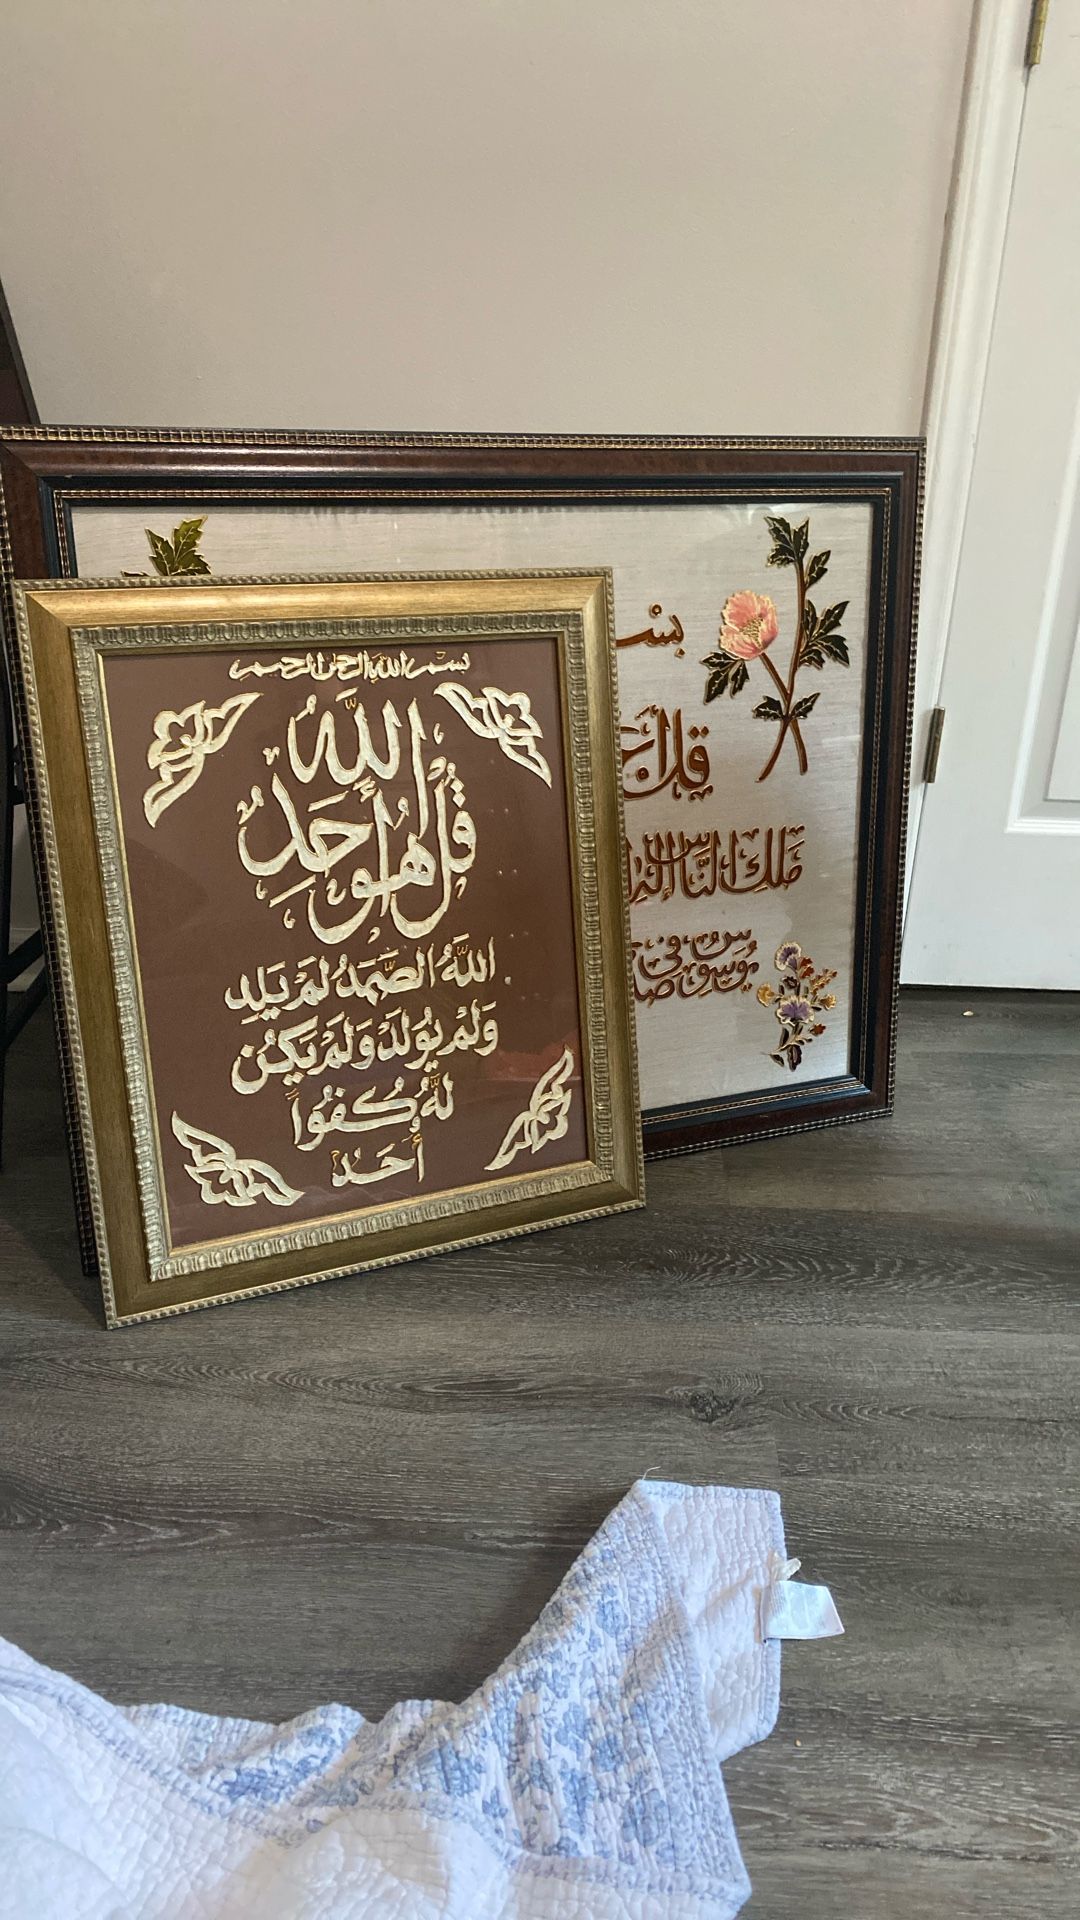 بسم الله الرحمن الرحيم
قُلْ هُوَ اللَّهُ أَحَدٌ
اللَّهُ الصَّمَدُ لَمْ يَلِدْ
وَلَمْ يُولَدْ وَلَمْ يَكُن
لَّهُ كُفُوًا
أَحَدٌ
بسم
قل أ
مَلِكِ النَّاسِ إِلَٰهِ
يُوَسْوِسُ فِي